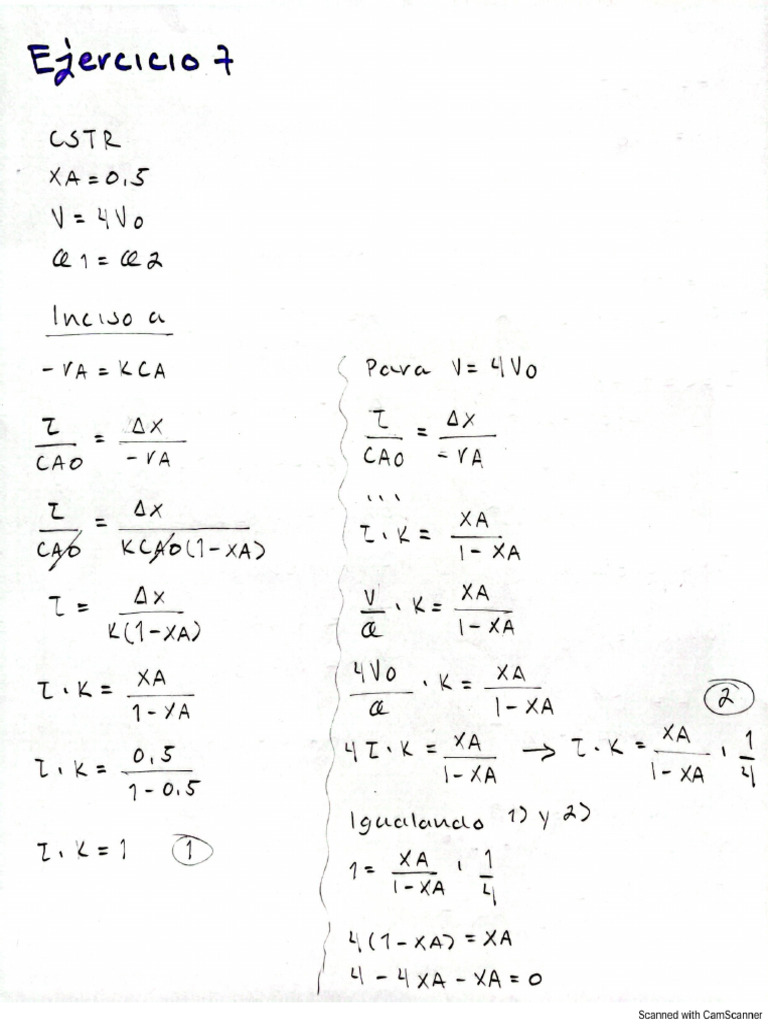 Ejercicio 7
CSTR
XA = 0,5
V = 4V0
Q1 = Q2
Inciso a
-rA = KCA
τ/CA0 = ΔX/-rA
τ/CA0 = ΔX/KCA0(1-XA)
τ = ΔX/K(1-XA)
τ·K = XA/1-XA
τ·K = 0,5/1-0.5
τ·K = 1 ①
Para V = 4V0
τ/CA0 = ΔX/-rA
...
τ·K = XA/1-XA
V/Q·K = XA/1-XA
4V0/Q·K = XA/1-XA
②
4τ·K = XA/1-XA → τ·K = XA/1-XA · 1/4
Igualando 1) y 2)
1 = XA/1-XA · 1/4
4(1-XA) = XA
4 - 4XA - XA = 0
Scanned with CamScanner